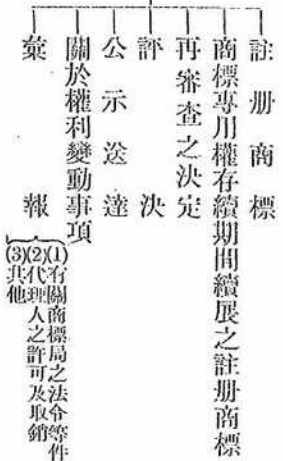 註册商標
商標專用權存續期間續展之註册商標
再審查之決定
評決
公示送達
關於權利變動事項
彙報
(1)有關商標局之法令等件
(2)代理人之許可及取銷
(3)其他